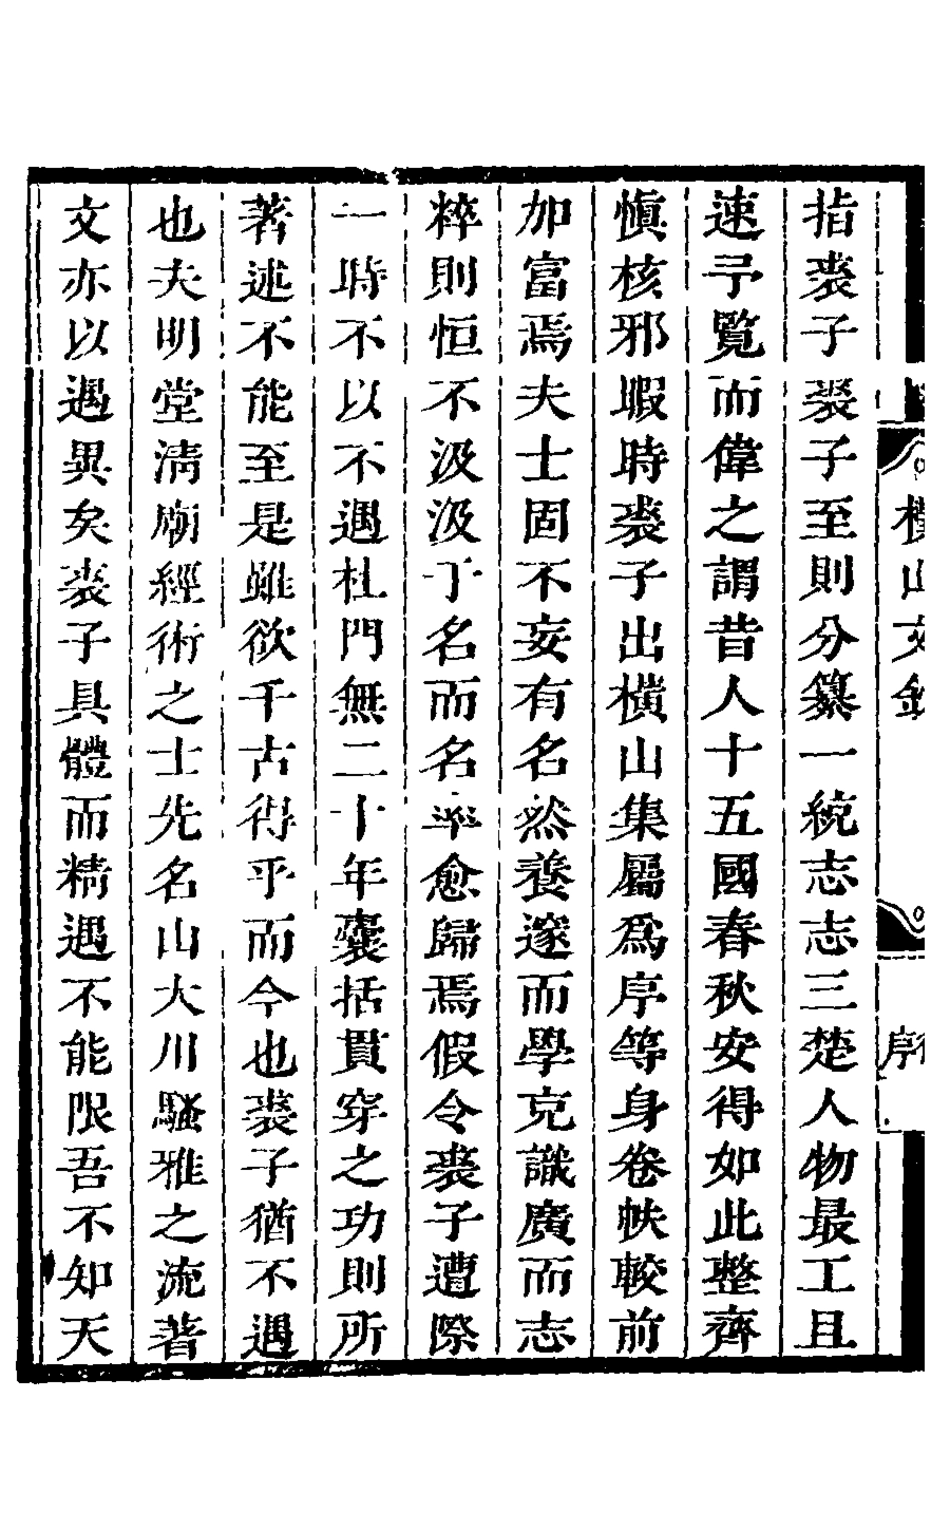 指裘子裘子至則分纂一統志志三楚人物最工且
速予覽而偉之謂昔人十五國春秋安得如此整齊
慎核邪暇時裘子出橫山集屬為序等身卷帙較前
加富焉夫士固不妄有名然養邃而學克識廣而志
粹則恒不汲汲于名而名卒愈歸焉假令裘子遭際
一時不以不遇杜門無二十年囊括貫穿之功則所
著述不能至是雖欲千古得乎而今也裘子猶不遇
也夫明堂淸廟經術之士先名山大川騷雅之流著
文亦以遇異矣裘子具體而精遇不能限吾不知天
橫山文鈔
序